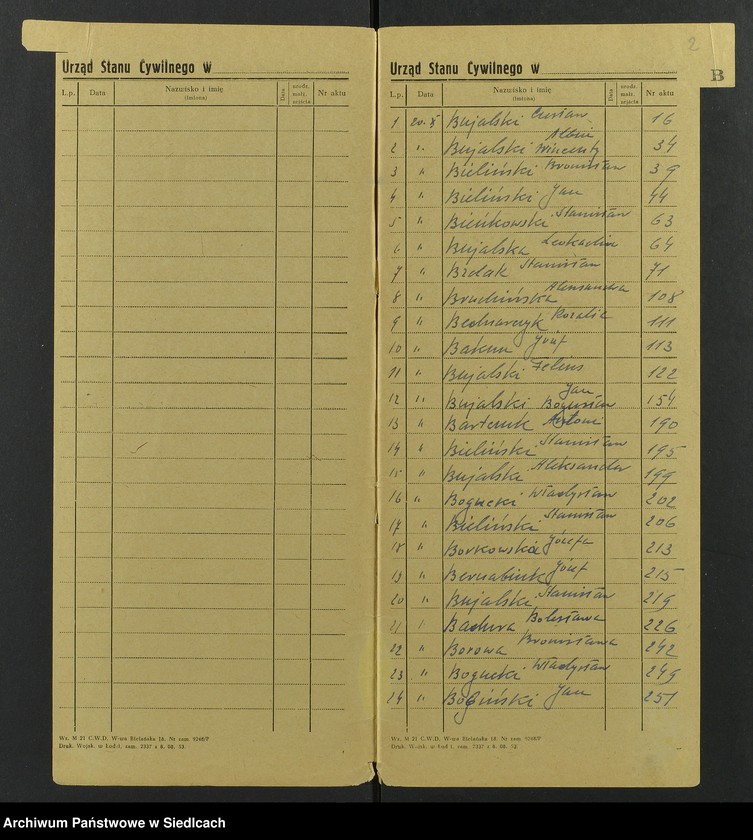 Urząd Stanu Cywilnego w
L.p. Data Nazwisko i imię (imiona) Data urodz. małż. zejścia Nr aktu
Wz. M 21 C.W.D. W-wa Bielańska 18. Nr zam. 9268/P
Druk. Wojsk. w Łodzi. zam. 2337 z 6. 08. 53.
2
B
Urząd Stanu Cywilnego w
L.p. Data Nazwisko i imię (imiona) Data urodz. małż. zejścia Nr aktu
1 20.X Bujalski 16
2 " Bujalski Albin Wincenty 34
3 " Bieliński Bronisław 39
4 " Bieliński Jan 44
5 " Bieńkowski Stanisław 63
6 " Bujalska Leokadia 64
7 " Bzdak Stanisław 71
8 " Bruchińska Aleksandra 108
9 " Bednarczyk Rozalia 111
10 " Bakun Józef 113
11 " Bujalski Feliks 122
12 " Bujalski Jan Bogusław 154
13 " Bartczuk Antoni 190
14 " Bieliński Stanisław 195
15 " Bujalska Aleksandra 199
16 " Bogucki Władysław 202
17 " Bieliński Stanisław 206
18 " Borkowska Józefa 213
19 " Bernabiuk Józef 215
20 " Bujalski Stanisław 219
21 " Badura Bolesława 226
22 " Borowa Bronisława 242
23 " Bogucki Władysław 249
24 " Bogiński Jan 251
Wz. M 21 C.W.D. W-wa Bielańska 18. Nr zam. 9268/P
Druk. Wojsk. w Łodzi. zam. 2337 z 6. 08. 53.
Archiwum Państwowe w Siedlcach